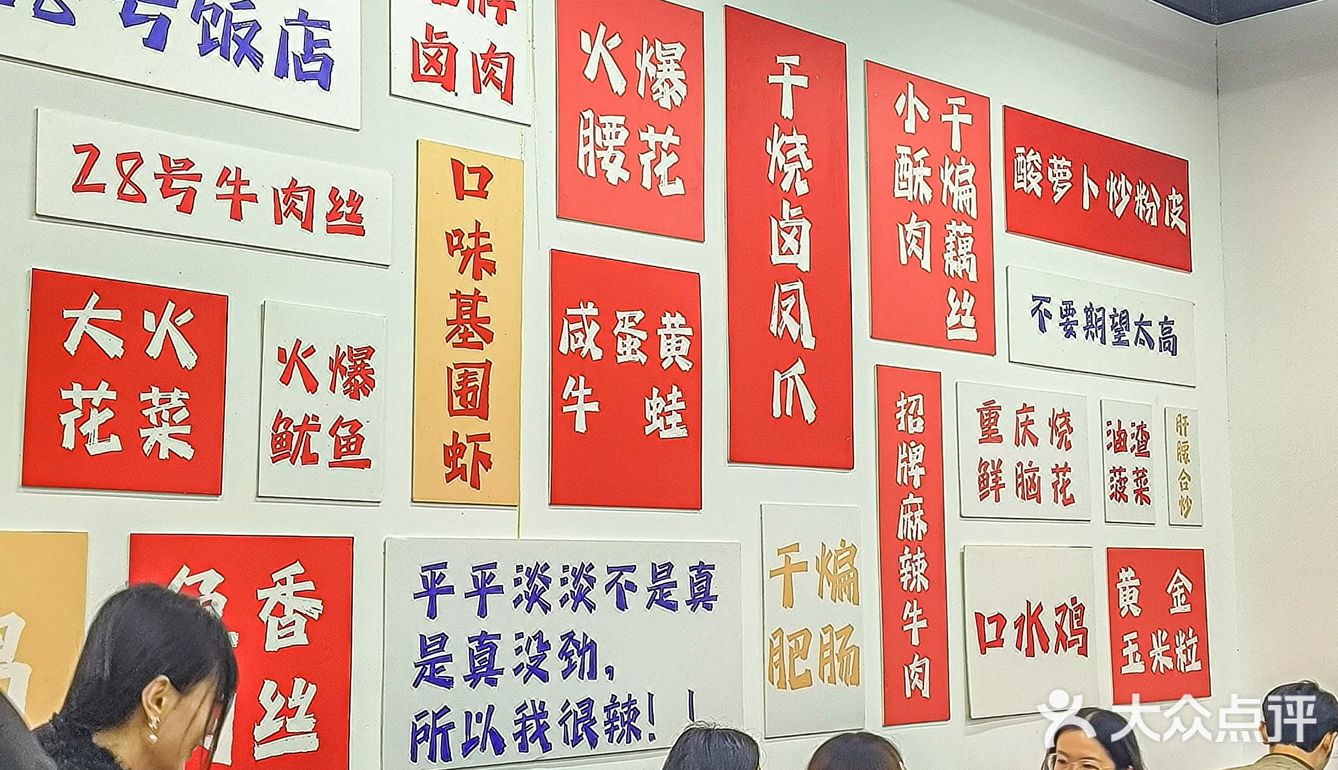 28号饭店
牌
卤肉
28号牛肉丝
大火
花菜
火爆
鱿鱼
口味基围虾
火爆
腰花
咸蛋黄
牛 蛙
干烧卤凤爪
干煸藕丝
小酥肉
酸萝卜炒粉皮
不要期望太高
招牌麻辣牛肉
重庆烧
鲜脑花
油渣
菠菜
肝腰合炒
香
丝
平平淡淡不是真
是真没劲,
所以我很辣!!
干煸
肥肠
口水鸡
黄金
玉米粒
大众点评